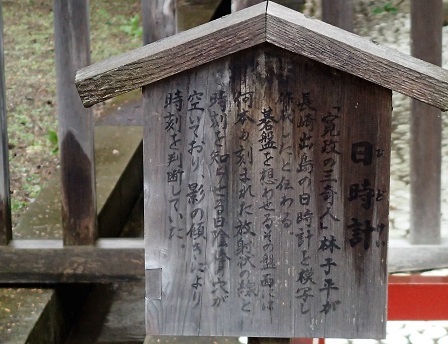 日時計
ひどけい
「寛政の三奇人」林子平が
長崎出島の日時計を模写し
作ったと伝わる
碁盤を想わせるその盤面には
何本も刻まれた放射状の線と
時刻を知らせる日陰棒の穴が
空いており、影の傾きにより
時刻を判断していた